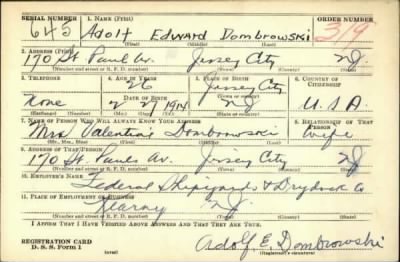 SERIAL NUMBER 1. NAME (Print) ORDER NUMBER
645 Adolf Edward Dombrowski 319
(First) (Middle) (Last)
2. ADDRESS (Print)
170 St. Paul Av. Jersey City N.J.
(Number and street or R. F. D. number) (Town) (County) (State)
3. TELEPHONE 4. AGE IN YEARS 5. PLACE OF BIRTH 6. COUNTRY OF CITIZENSHIP
26 Jersey City
DATE OF BIRTH
None 2 27 1914 N.J. U.S.A.
(Exchange) (Number) (Mo.) (Day) (Yr.) (State or country)
7. NAME OF PERSON WHO WILL ALWAYS KNOW YOUR ADDRESS 8. RELATIONSHIP OF THAT PERSON
Mrs Valentine Dombrowski wife
(Mr., Mrs., Miss) (First) (Middle) (Last)
9. ADDRESS OF THAT PERSON
170 St. Pauls Av. Jersey City NJ
(Number and street or R. F. D. number) (Town) (County) (State)
10. EMPLOYER'S NAME
Federal Shipyard & Drydock Co
11. PLACE OF EMPLOYMENT OR BUSINESS
Kearny N.J.
(Number and street or R. F. D. number) (Town) (County) (State)
I AFFIRM THAT I HAVE VERIFIED ABOVE ANSWERS AND THAT THEY ARE TRUE.
REGISTRATION CARD
D. S. S. Form 1
Adolf E. Dombrowski
(Registrant's signature)